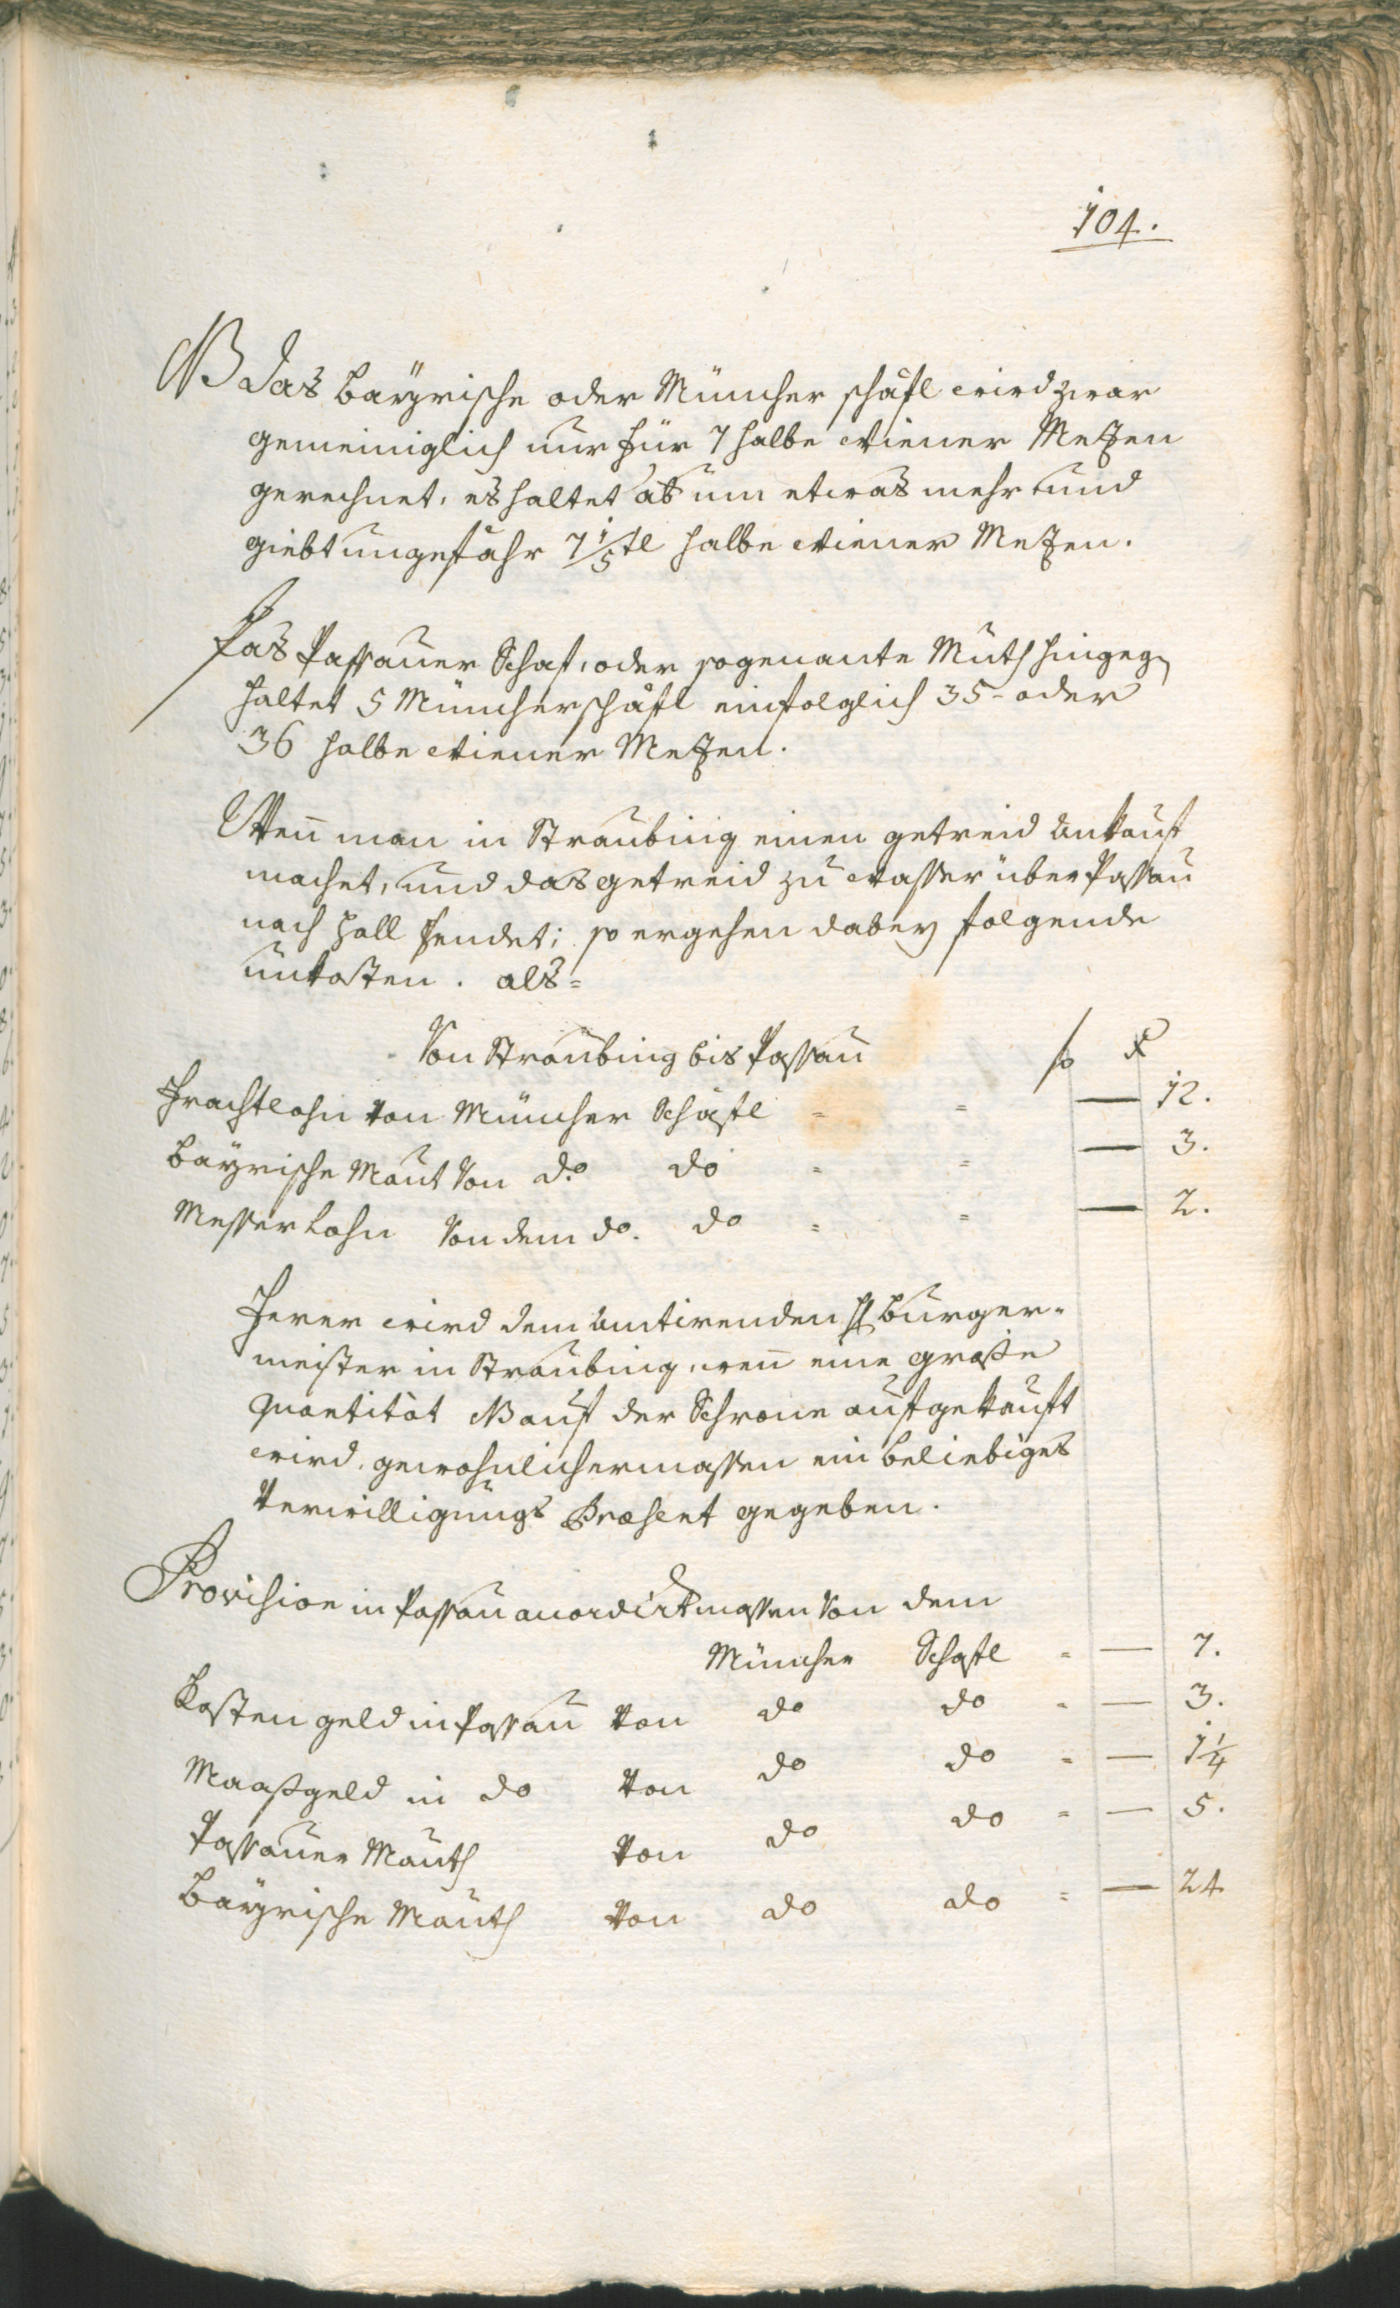 104.
NB das bayrische oder Müncher schäfl wird zwar
gemeiniglich nur für 7 halbe Wiener Metzen
gerechnet, es haltet ab um etwas mehr und
giebt ungefähr 7 1/5tl halbe Wiener Metzen.
Das Passauer Schaf, oder sogenante Muth hingeg
haltet 5 Müncher schäfl einfolglich 35- oder
36 halbe Wiener Metzen.
Weñ man in Straubing einen getreid Ankauf
machet, und das getreid zu Wasser über Passau
nach Hall sendet; so ergehen dabey folgende
Unkosten. als=
Von Straubing bis Passau f x
Frachtlohn von Müncher Schäfl = = — 12.
Bayrische Maut von do do = = — 3.
Messer Lohn von dem do. do = = — 2.
Ferer wird dem Amtirenden H Burger=
meister in Straubing, weñ eine große
Quantität NB auf der Schrane aufgekauft
wird, gewohnlichermassen ein beliebiges
Verwilligungs Præsent gegeben.
Provision in Passau accordirtmassen von dem
Müncher Schafl = — 7.
Kosten geld in Passau von do do = — 3.
Maaßgeld in do von do do = — 1 1/4
Passauer Mauth von do do = — 5.
Bayrische Mauth von do do = — 24